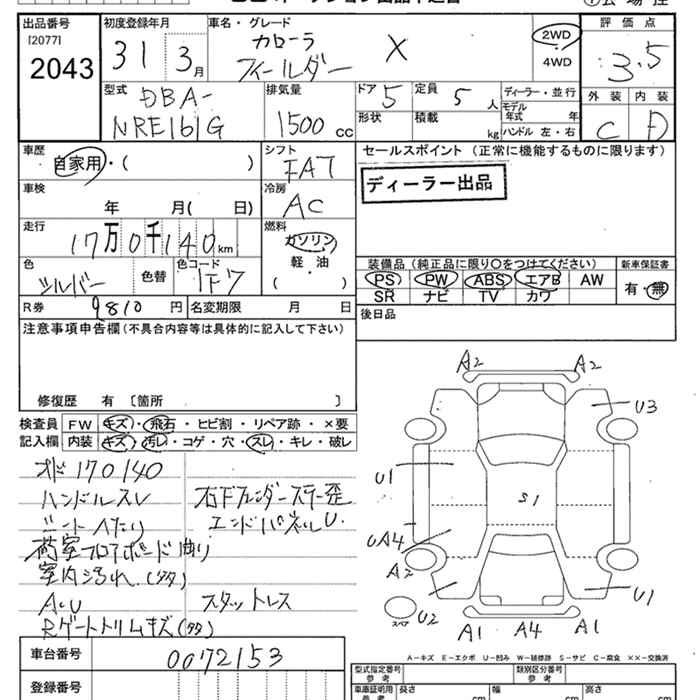 出品番号 初度登録年月 車名・グレード 評価点
[2077] 31 3月 カローラ X 2WD
2043 フィールダー 4WD 3.5
型式 DBA- 排気量 ドア 5 定員 5人 ディーラー・並行 外装 内装
NRE161G 1500cc 形状 積載 kg モデル年式 年 C D
ハンドル 左・右
車歴 シフト セールスポイント (正常に機能するものに限ります)
自家用・( ) FAT ディーラー出品
車検 冷房
年 月( 日) AC
走行 燃料
17万0千140km ガソリン
色 色替 色コード 軽・油 装備品(純正品に限り○をつけてください) 新車保証書
シルバー 1F7 ( ) PS PW ABS エアB AW 有・無
R券 9810円 名変期限 月 日 SR ナビ TV カワ
注意事項申告欄(不具合内容等は具体的に記入して下さい) 後日品
修復歴 有 〔箇所 〕
検査員 FW キズ・飛石・ヒビ割・リペア跡・×要
記入欄 内装 キズ・汚レ・コゲ・穴・スレ・キレ・破レ
オド170140
ハンドルスレ 右Fフェンダーステー歪
シートヘタリ エンドパネルU.
荷室フロアボード曲り
室内汚れ(タタ)
ACU スタットレス
Rゲートトリムキズ(タタ)
A2 A2
U3
U1
S1
UA4
A2
U2 U1
スペア
A1 A4 A1
車台番号 0072153
A-キズ E-エクボ U-凹み W-補修跡 S-サビ C-腐食 XX-交換済
登録番号
型式指定番号 参考 類別区分番号 参考
車庫証明用 参考 長さ cm 幅 cm 高さ cm